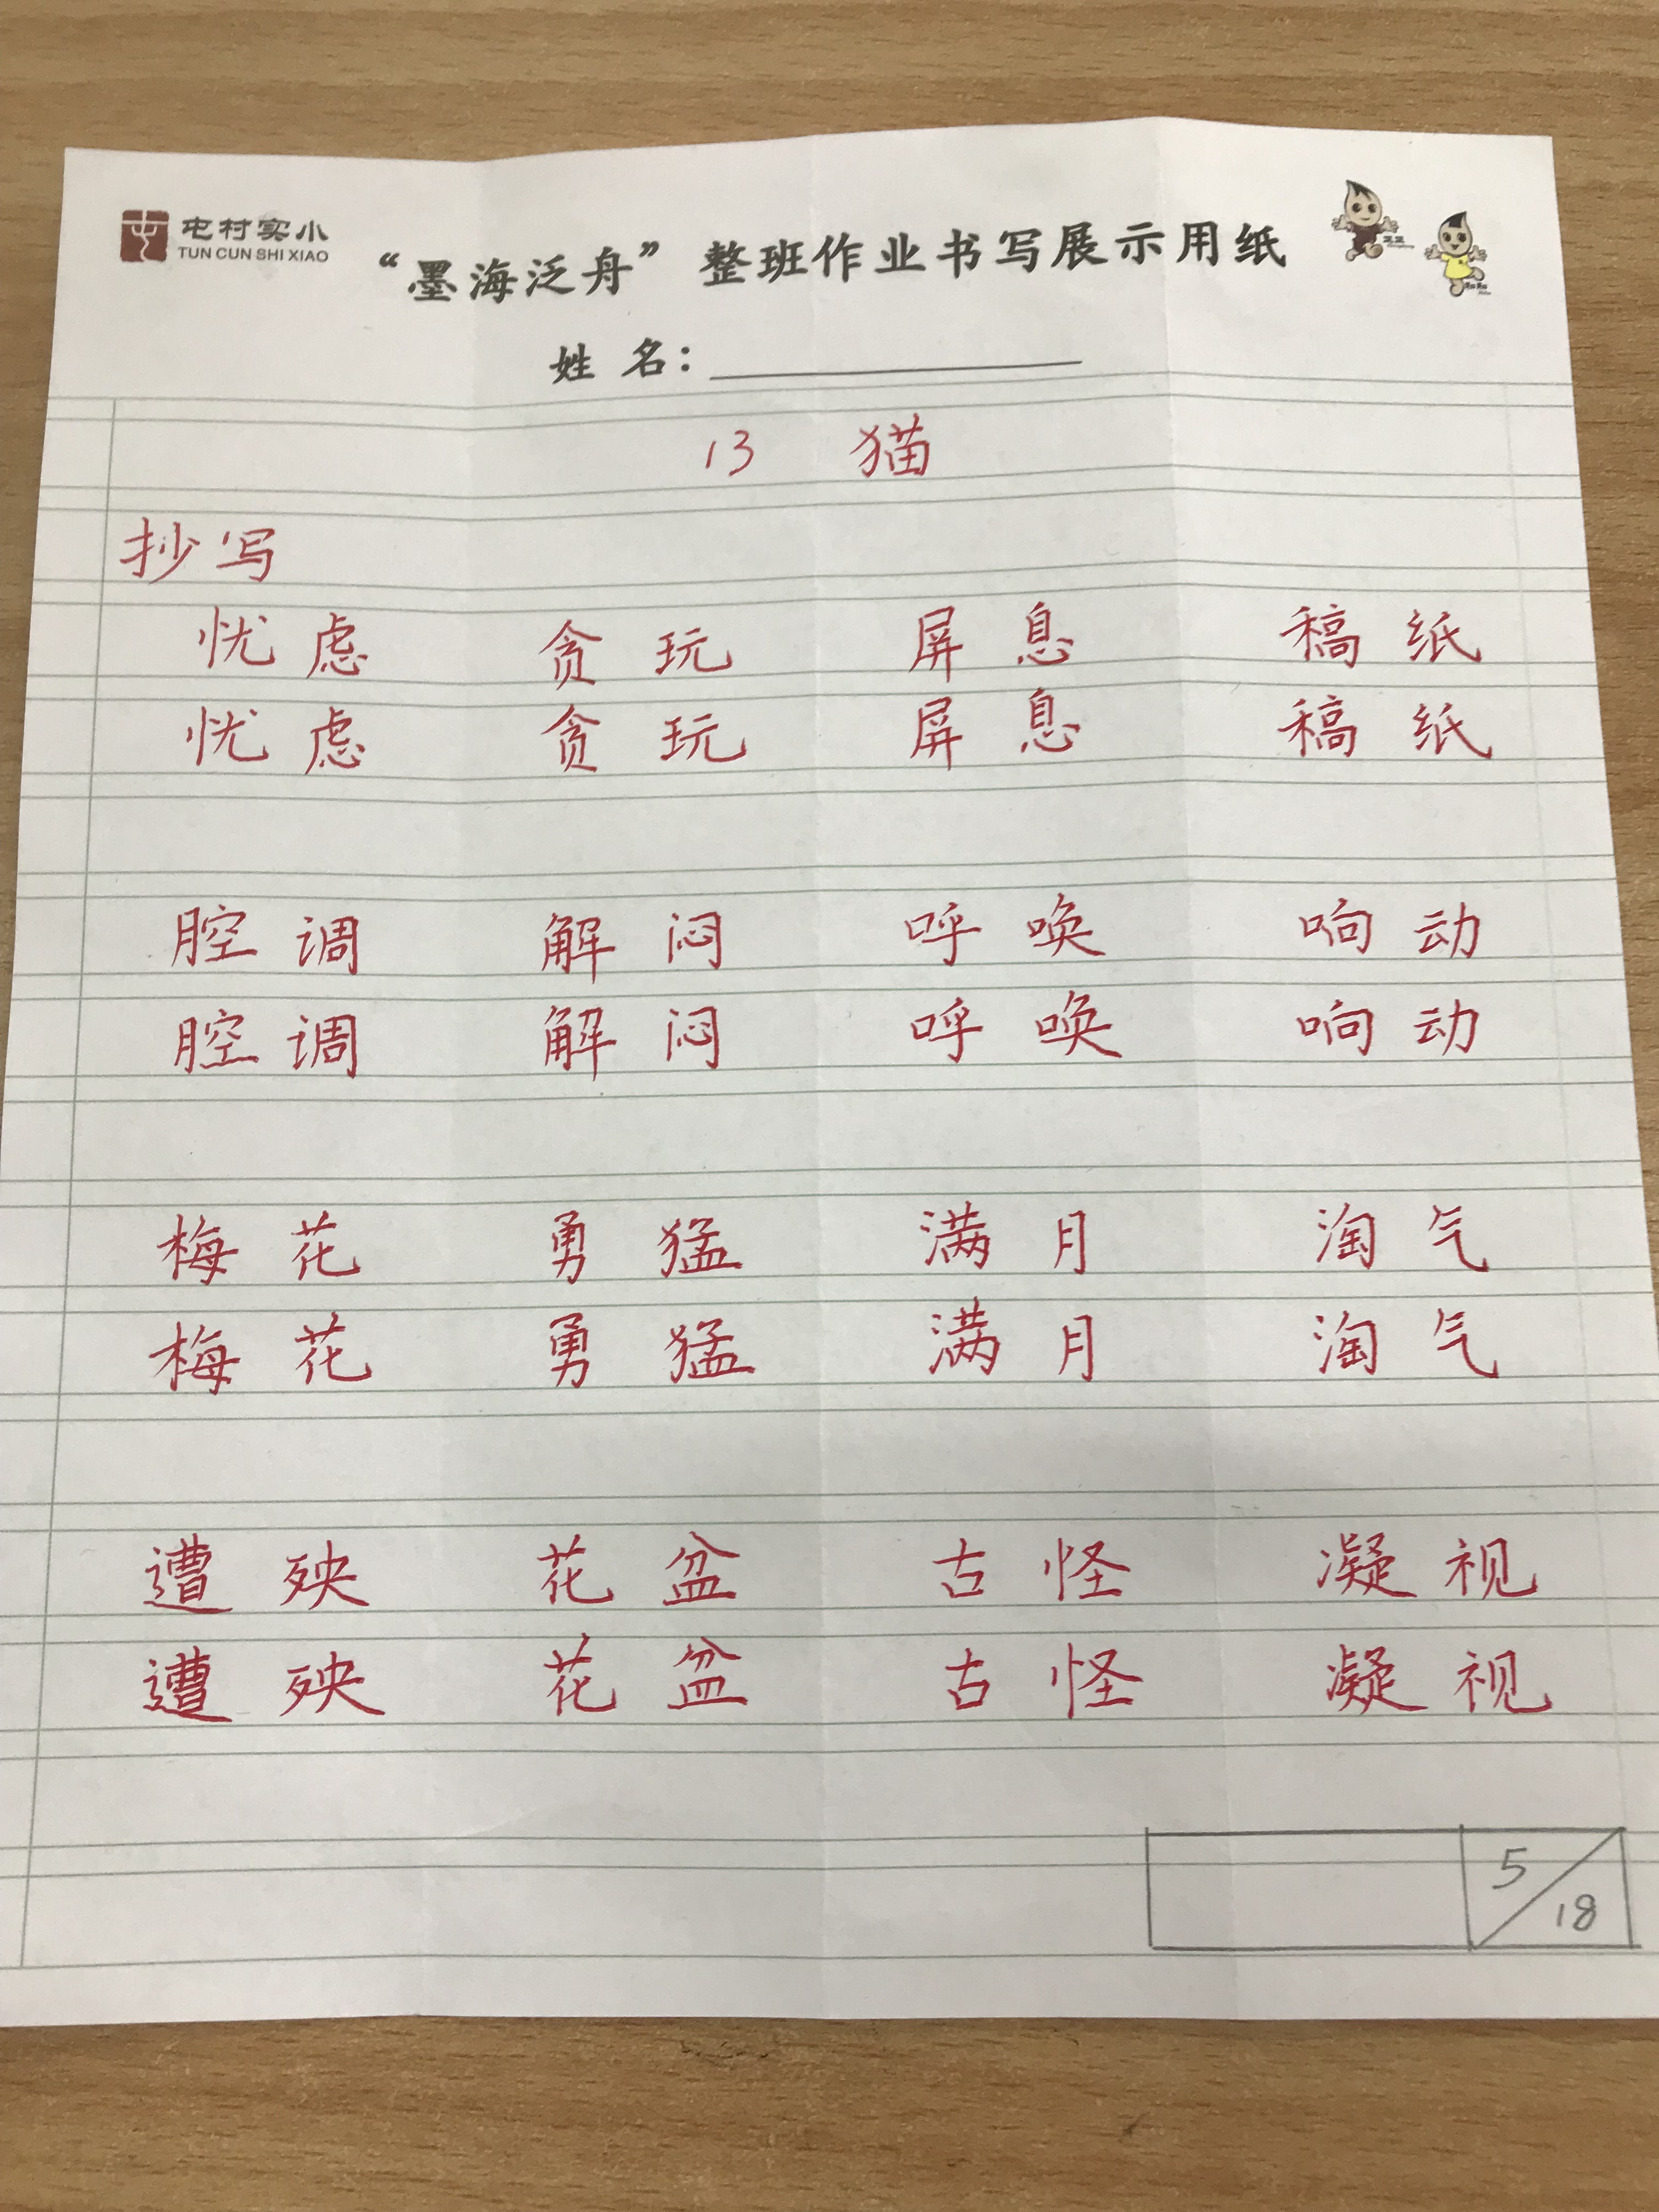 屯村实小
TUN CUN SHI XIAO
“墨海泛舟”整班作业书写展示用纸
姓 名：
13 猫
抄写
忧虑 贪玩 屏息 稿纸
忧虑 贪玩 屏息 稿纸
腔调 解闷 呼唤 响动
腔调 解闷 呼唤 响动
梅花 勇猛 满月 淘气
梅花 勇猛 满月 淘气
遭殃 花盆 古怪 凝视
遭殃 花盆 古怪 凝视
5/18